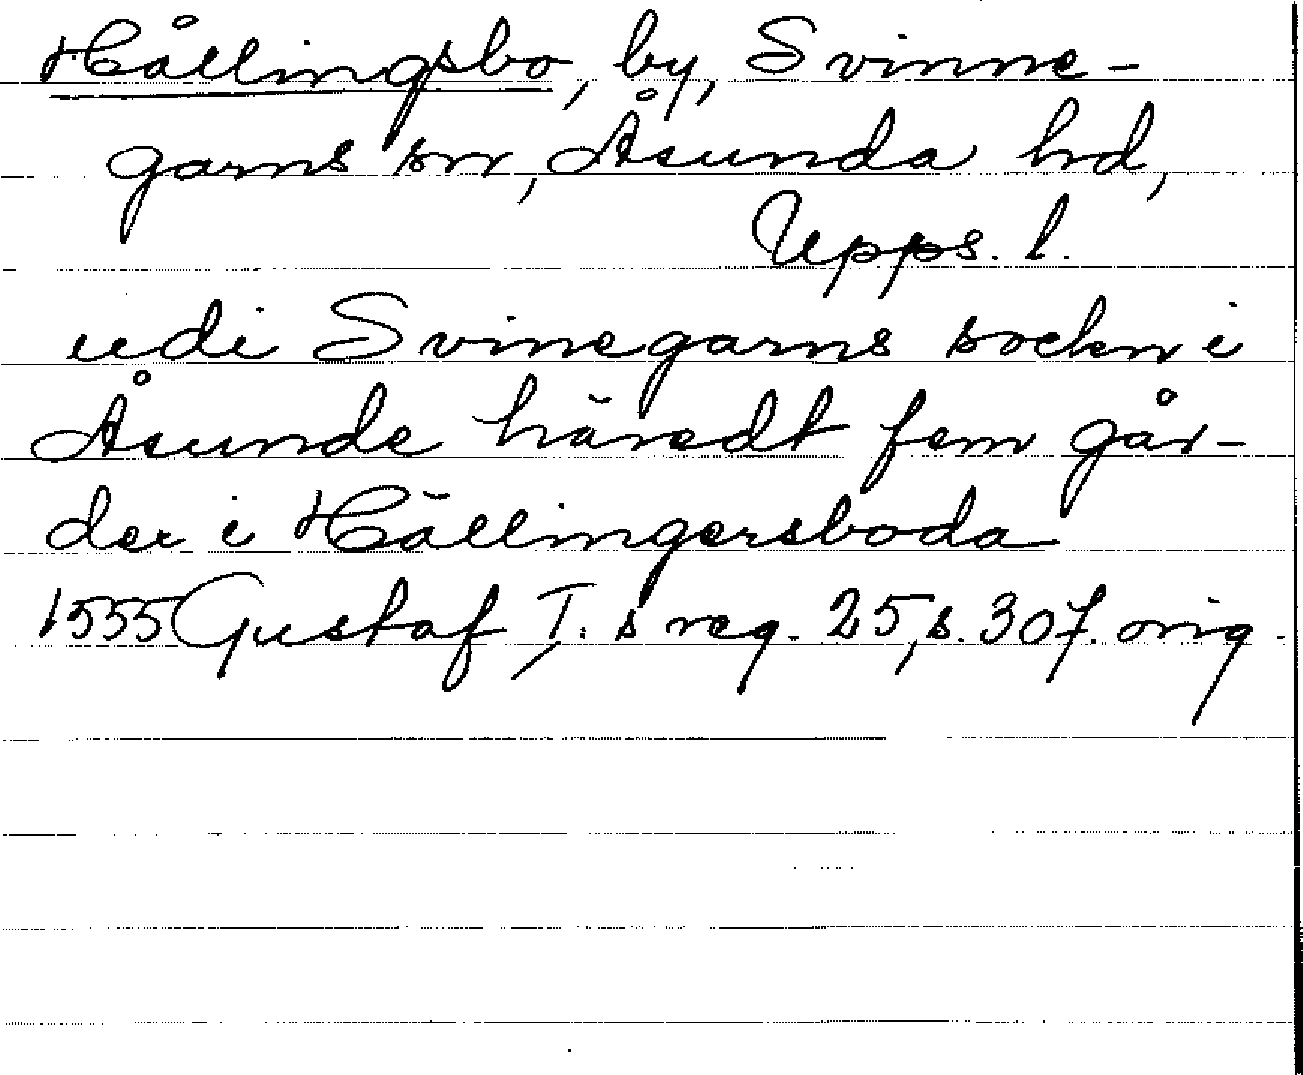 Hållingsbo, by, Svinne-
garns sn, Åsunda hd,
Upps. l.
udi Svinegarns sockn i
Åsunde häredt fem går-
der i Hällingersboda
1555 Gustaf I:s reg. 25, s. 307. orig.